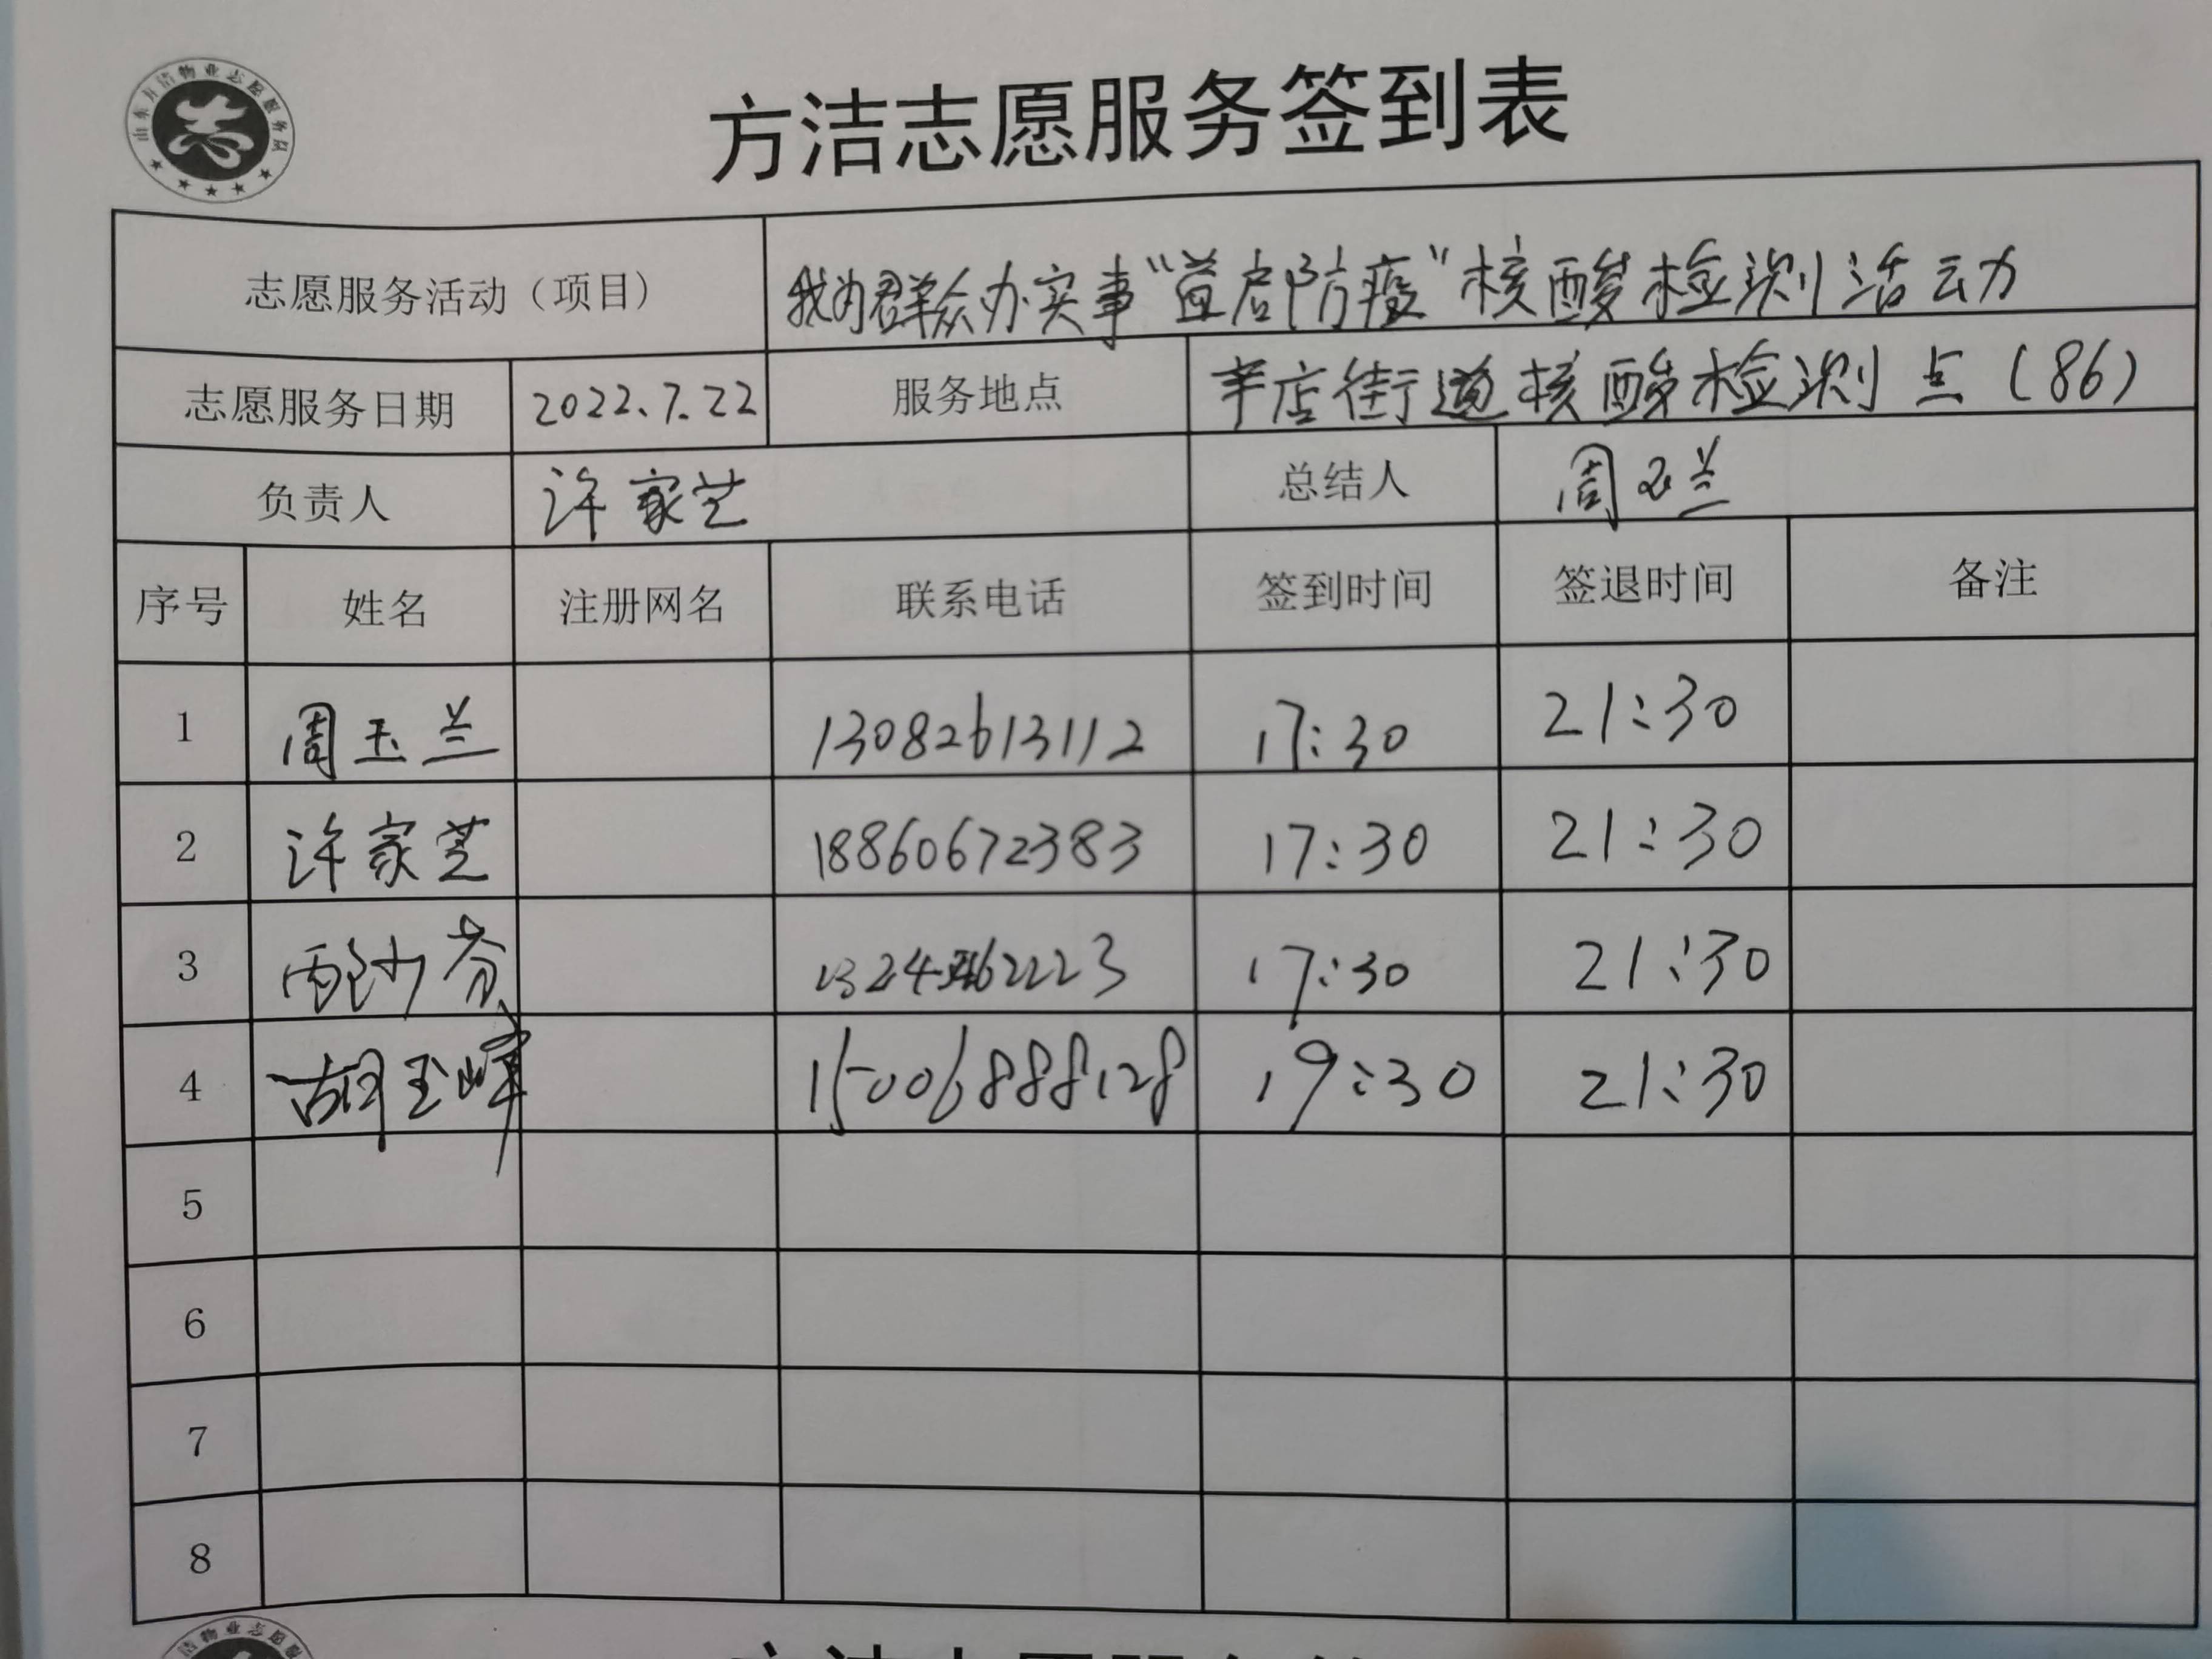 山东方洁物业志愿服务队
方洁志愿服务签到表
志愿服务活动（项目） 我为群众办实事“益启防疫”核酸检测活动
志愿服务日期 2022.7.22 服务地点 辛店街道核酸检测点（86）
负责人 许家芝 总结人 周玉兰
序号 姓名 注册网名 联系电话 签到时间 签退时间 备注
1 周玉兰 13082613112 17:30 21:30
2 许家芝 18860672383 17:30 21:30
3 17:30 21:30
4 胡玉峰 15006888128 19:30 21:30
5
6
7
8
洁物业志愿服